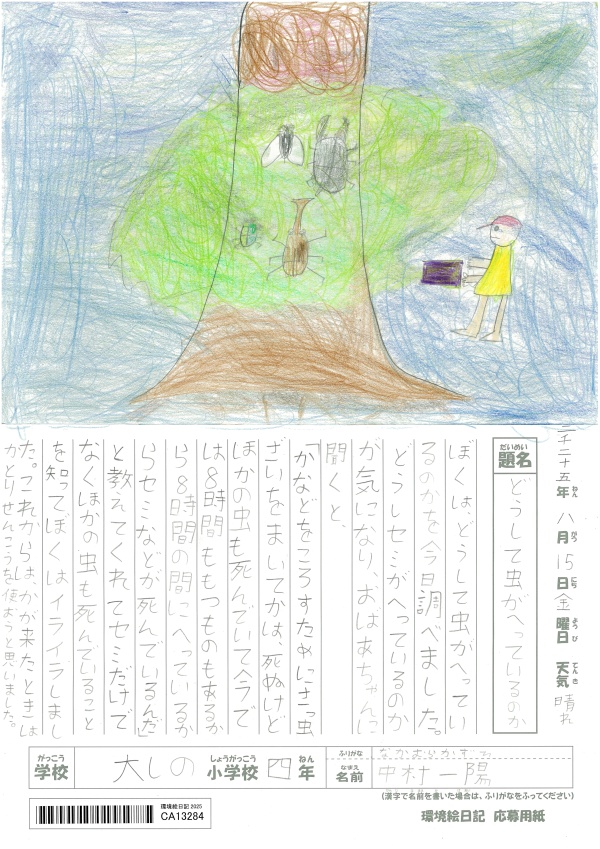 二千二十五年 八月 15日 金曜日 天気 晴れ
ねん がつ にち ようび てんき
だいめい
題名 どうして虫がへっているのか
ぼくは、どうして虫がへってい
るのかを今日調べました。
どうしセミがへっているのか
が気になり、おばあちゃんに
聞くと、
「かなどをころすためにさっ虫
ざいをまいてかは、死ぬけど
ほかの虫も死んでいて今で
は8時間ももつものもあるか
ら8時間の間にへっているか
らセミなどが死んでいるんだ」
と教えてくれてセミだけで
なくほかの虫も死んでいること
を知ってぼくはイライラしまし
た。これからは、かが来たときは
かとりせんこうを使おうと思いました。
がっこう しょうがっこう ねん
学校 大しの 小学校 四年
ふりがな なかむらかずひ
なまえ
名前 中村一陽
(漢字で名前を書いた場合は、ふりがなをふってください)
環境絵日記 2025
CA13284
環境絵日記 応募用紙